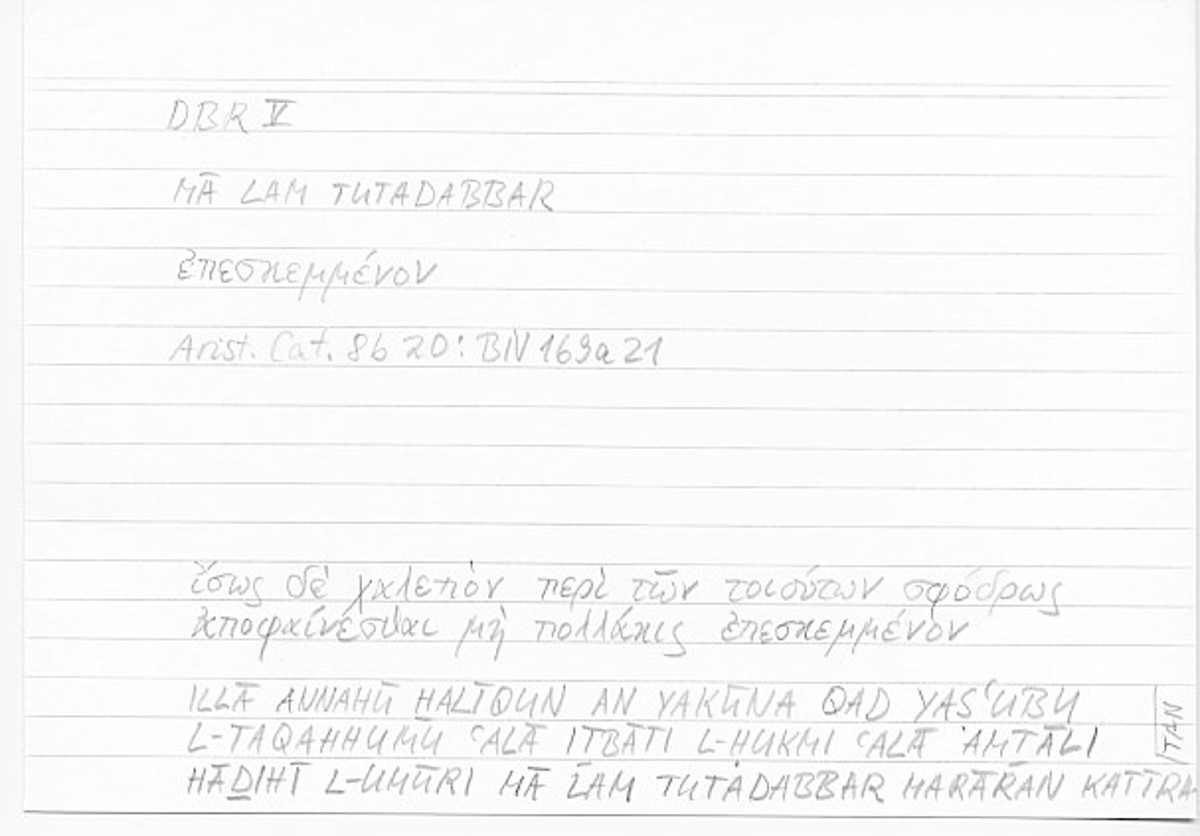 DBR V
MĀ LAM TUTADABBAR
ἐπεσκεμμένον
Arist. Cat. 8b 20: BN 169a21
ἴσως δὲ χαλεπὸν περὶ τῶν τοιούτων σφόδρως
ἀποφαίνεσθαι μὴ πολλάκις ἐπεσκεμμένον
ILLĀ ANNAHŪ HALĪQUN AN YAKŪNA QAD YAṢʿUBU
L-TAQAHHUMU ʿALĀ IṮBĀTI L-HUKMI ʿALĀ ʾAMṮĀLI
HĀḎIHĪ L-UMŪRI MĀ LAM TUTADABBAR MARĀRAN KAṮĪRA
/TAN